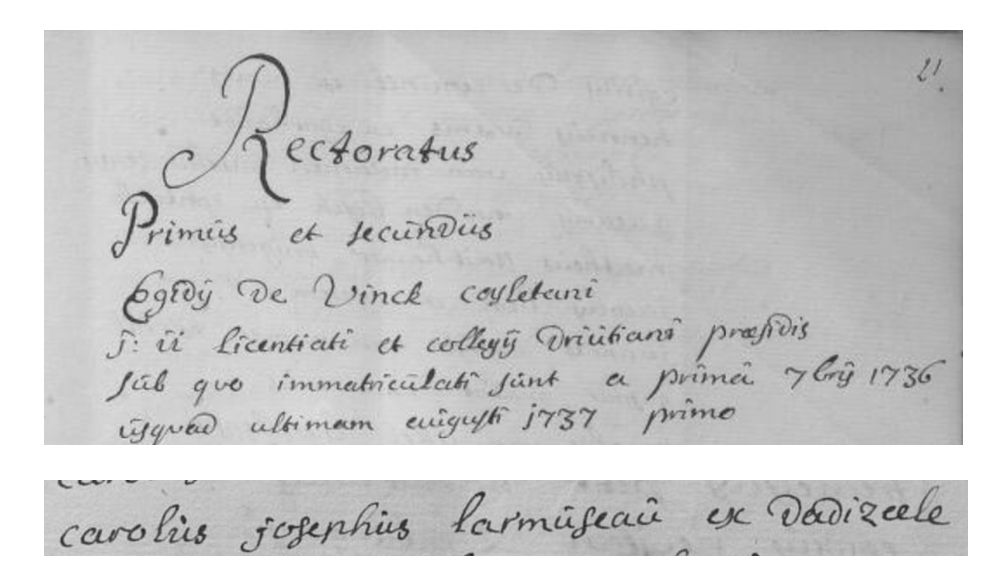 21.
Rectoratus
Primus et secundus
Egidij de Vinck coyletani
j: u licentiati et collegij driutiani præsidis
sub quo immatriculati sunt a prima 7brij 1736
usquad ultimam augusti 1737 primo
carolus josephus larmuseau ex dadizeele